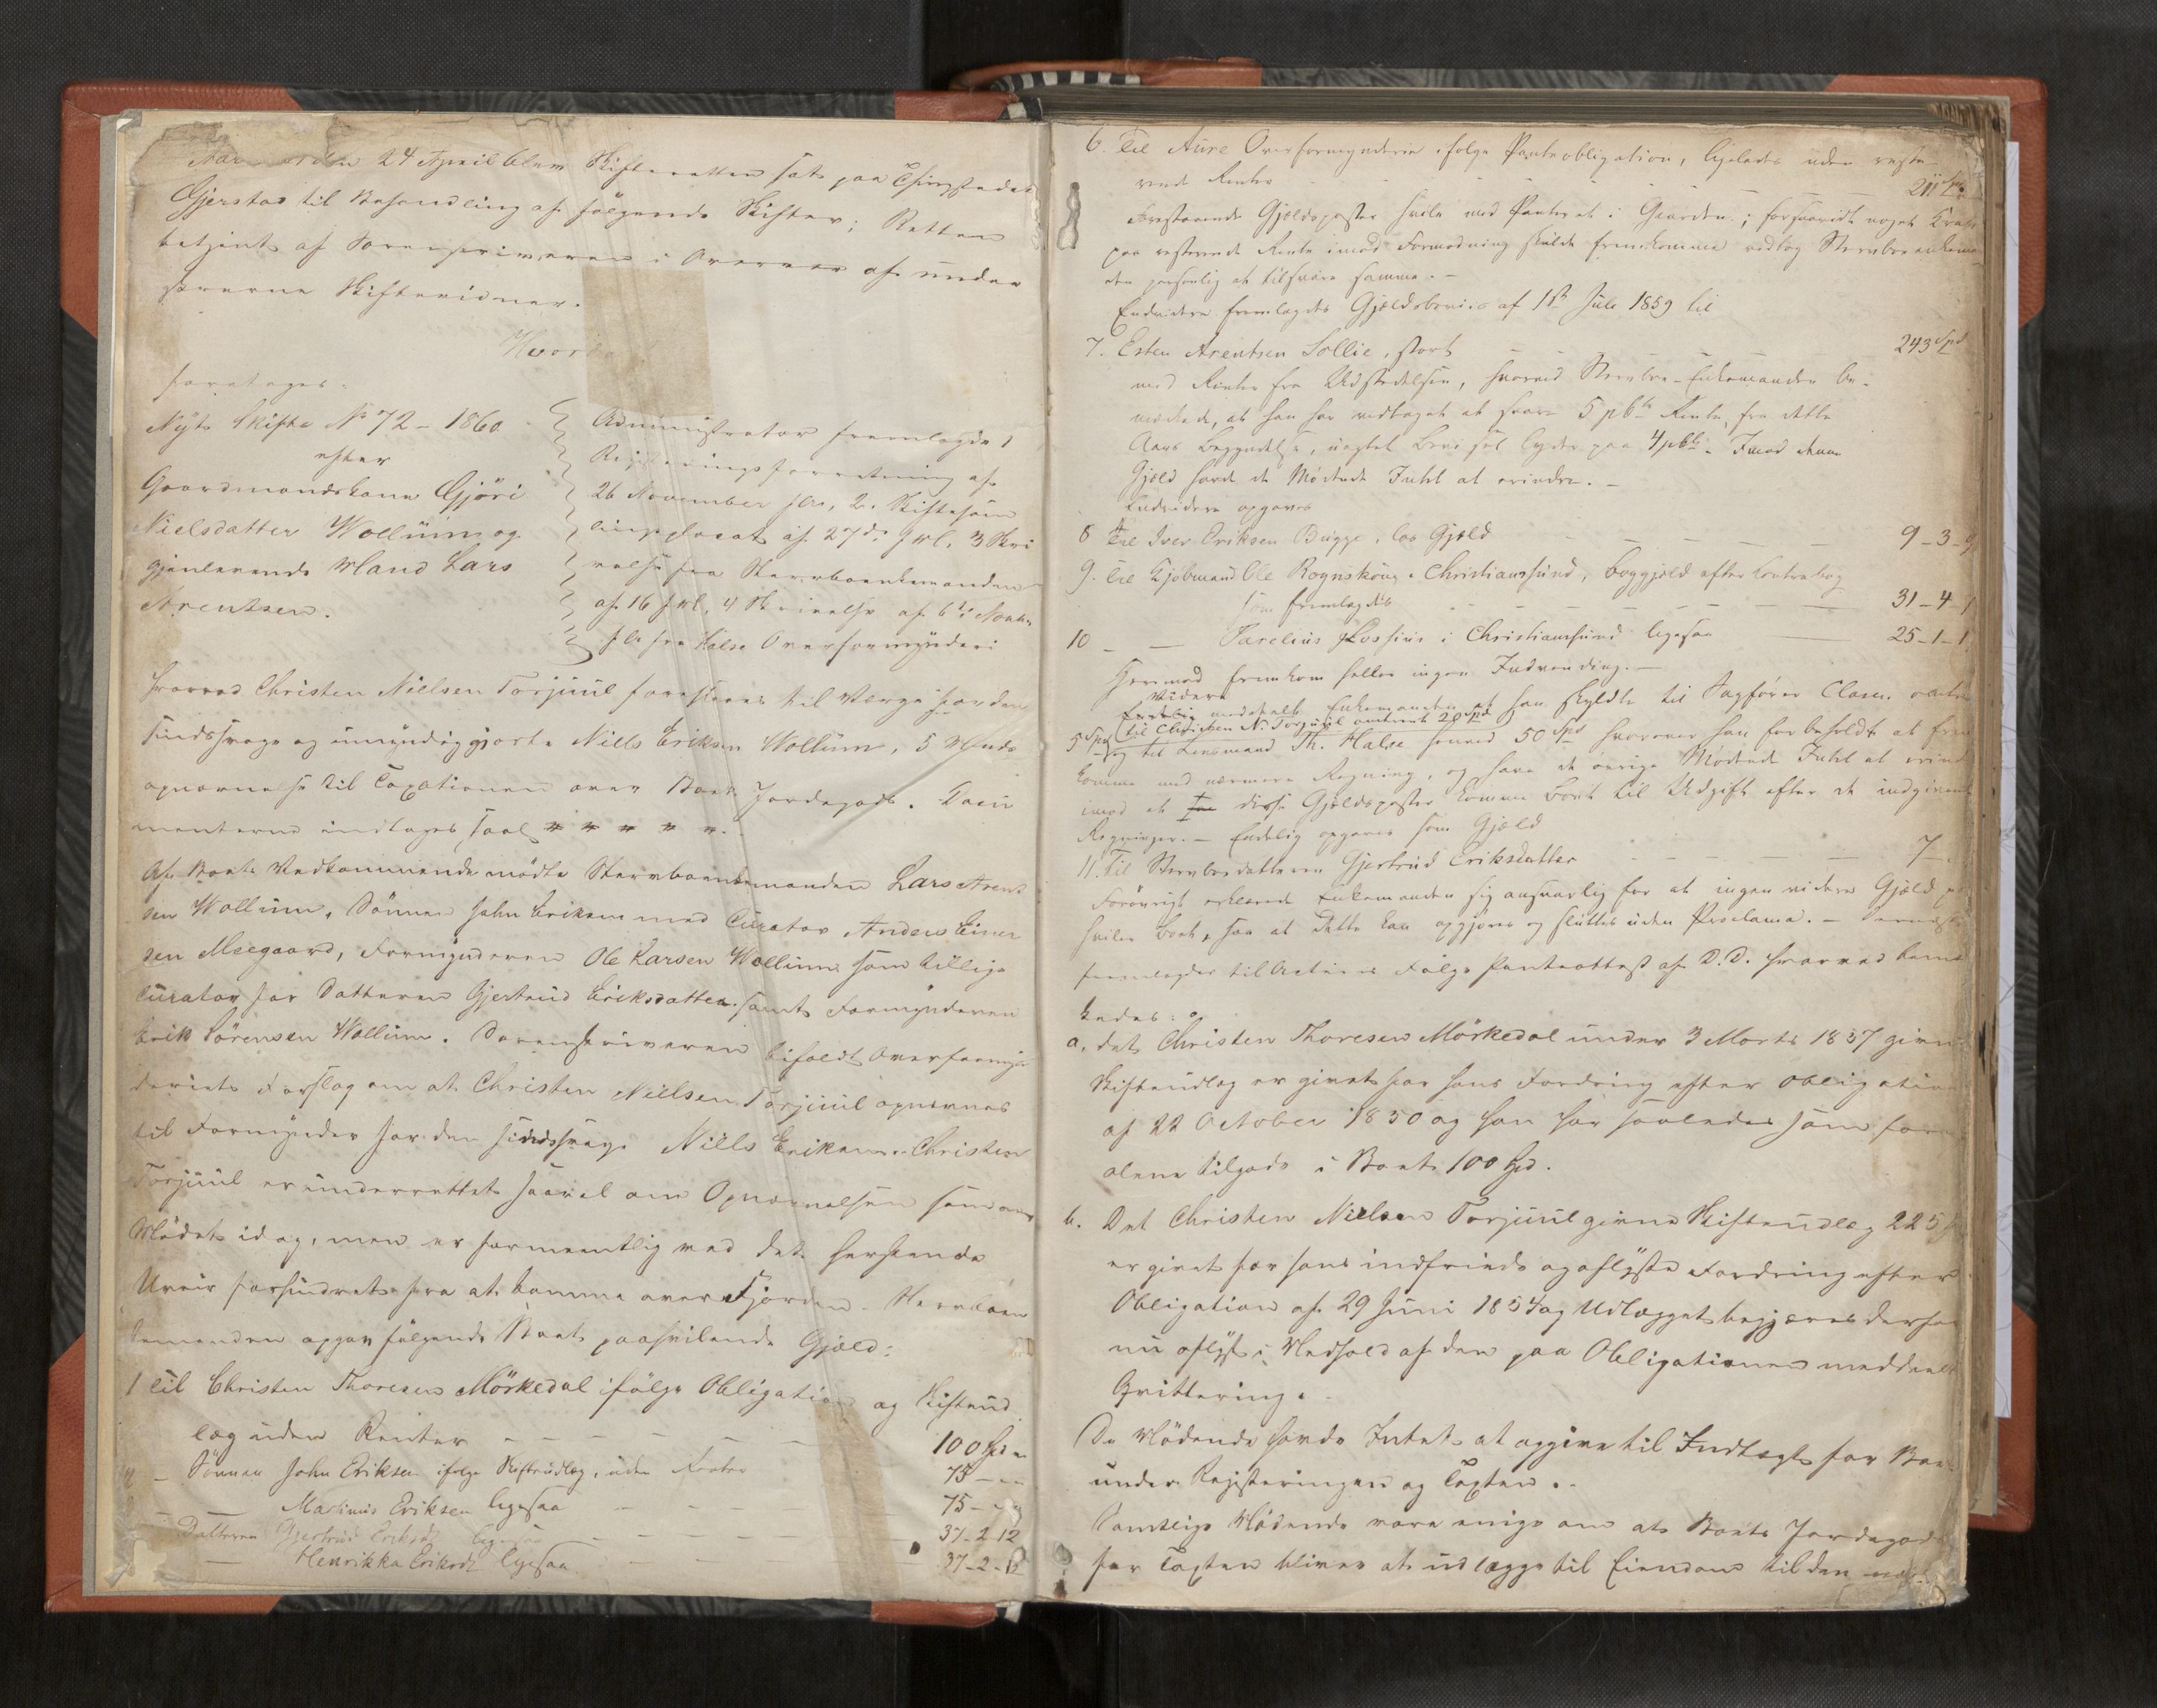 den 24 April blev Skifteretten sat paa Thingstedet
Gjerstad til Behandling af følgende Skifter; Retten
betjent af Sorenskriveren i Overvær af under
skrevne Skiftevidner.
Hvorda
foretoges:
Nyt Skifte No 72 - 1860
efter
Gaardmandskone Gjöri
Nielsdatter Wollum og
gjenlevende Mand Lars
Arentsen.
Administrator fremlagde 1
Registreringsforretning af
26 November f.A., 2. Skiftesam
lings af 27de , 3 Skri
velse fra Stervboenkemanden
af 16 , 4 Skrivelse af 6te
f.A. fra Halse Overformynderi
hvorved Christen Nielsen Torjuul foreslaaes til Værge for den
sindssvage og umyndiggjorte Niels Eriksen Wollum, 5 Mænds
opnævnelse til Taxationen over Boets Jordegods. Docu
menterne indtages, saal
Af Boets Vedkommende mødte Stervboenkemanden Lars Arent
sen Wollum, Sönnen John Eriksen med Curator Anders Einer
sen Meegaard, Formynderen Ole Larsen Wollum som tillige
Curator for Datteren Gjertrud Eriksdatter samt Formynderen
Erik Sörensen Wollum. Sorenskriveren bifaldt Overformyn
deriets Forslag om at Christen Nielsen Torjuul opnævnes
til Formynder for den sindssvage Niels Eriksen. Christen
Torjuul er underrettet saavel om Opnævnelsen som om
Mödet idag, men er formeentlig ved det herskende
Uveir forhindret fra at komme over Fjorden. Stervboen
kemanden opgav fölgende Boets paahvilende Gjæld:
1 til Christen Thoresen Mörkedal ifölge Obligation og Skifteud
læg uden Renter - - - - - 100 Spd
- Sönnen John Eriksen ifølge Skifteudlæg, uden Renter 75 - "
- Martinus Eriksen ligesaa - - - 75 - "
Datteren Gjertrud Eriksd. ligesaa - - - 37-2-12
- Henrikka Eriksd. ligesaa - - 37-2-12
6. Til Aure Overformynderie ifølge Panteobligation, ligeledes uden reste-
rende Renter - - - - - - 211 Spd
Forestaaende Gjældsposter hvile med Panteret i Gaarden; forsaavidt noget Krav
paa resterende Rente imod Formodning skulde fremkomme vedtog Stervboenkeman
den personlig at tilsvare samme. -
Endvidere fremlagdes Gjældsbevis af 11te Juli 1859 til
7. Esten Arentsen Sollie, stort - - - 243 Spd
med Renter fra Udstedelsen, hvorved Stervbo-Enkemanden be-
mærkede, at han har vedtaget at svare 5 pCt Rente, fra dette
Aars Begyndelse, uagtet Beviset lyder paa 4 pCt. Imod denne
Gjæld havde de Mødende Intet at erindre. -
Endvidere opgaves
8 Til Iver Eriksen Bugge, løs Gjæld - - - - - 9-3-9
9. Til Kjøbmand Ole Rognskoug i Christianssund, Boggjæld efter Contrabog
som fremlagdes - - - - - - 31-4-1
10 - - Parelius Lossius i Christianssund ligesaa - 25-1-1
Herimod fremkom heller ingen Indvending. -
Videre
Endelig meddeelte Enkemanden at han skyldte til Sagfører Clasen omtr.
til Christen N. Torjuul omtrent 20 Spd
5 Spd og til Lensmand Th. Halse henved 50 Spd hvorover han forbeholdt at frem
komme med nærmere Regning, og havde de øvrige Mødende Intet at erindre
imod at disse Gjældsposter komme Boet til Udgift efter de indgivende
Regninger. - Endelig opgaves som Gjæld
11. Til Stervbodatteren Gjertrud Eriksdatter - - - - 7
Forøvrigt erklærede Enkemanden sig ansvarlig for at ingen videre Gjæld paa
hviler Boet, saa at Dette kan opgjøres og sluttes uden Proclama. - Dernæst
fremlagdes til Actens Følge Panteattest af D.D. hvorved bemær
kedes:
a. det Christen Thoresen Mörkedal under 3 Marts 1837 givne
Skifteudlæg er givet for hans Fordring efter Obligation
af 22 October 1830 og han har saaledes som
alene tilgode i Boet 100 Spd.
b. Det Christen Nielsen Torjuul givne Skifteudlæg 225
er givet for hans indfriede og aflyste Fordring efter
Obligation af 29 Juni 1834 og Udlægget begjæres derfor
nu aflyst i Medhold af den paa Obligationen meddeelte
Qvittering.
De Mödende havde Intet at opgive til Indtægt for Boet
under Registeringen og Taxten.
Samtlige Mödende vare enige om at Boets Jordegods
for Taxten bliver at udlægge til Eiendom til den